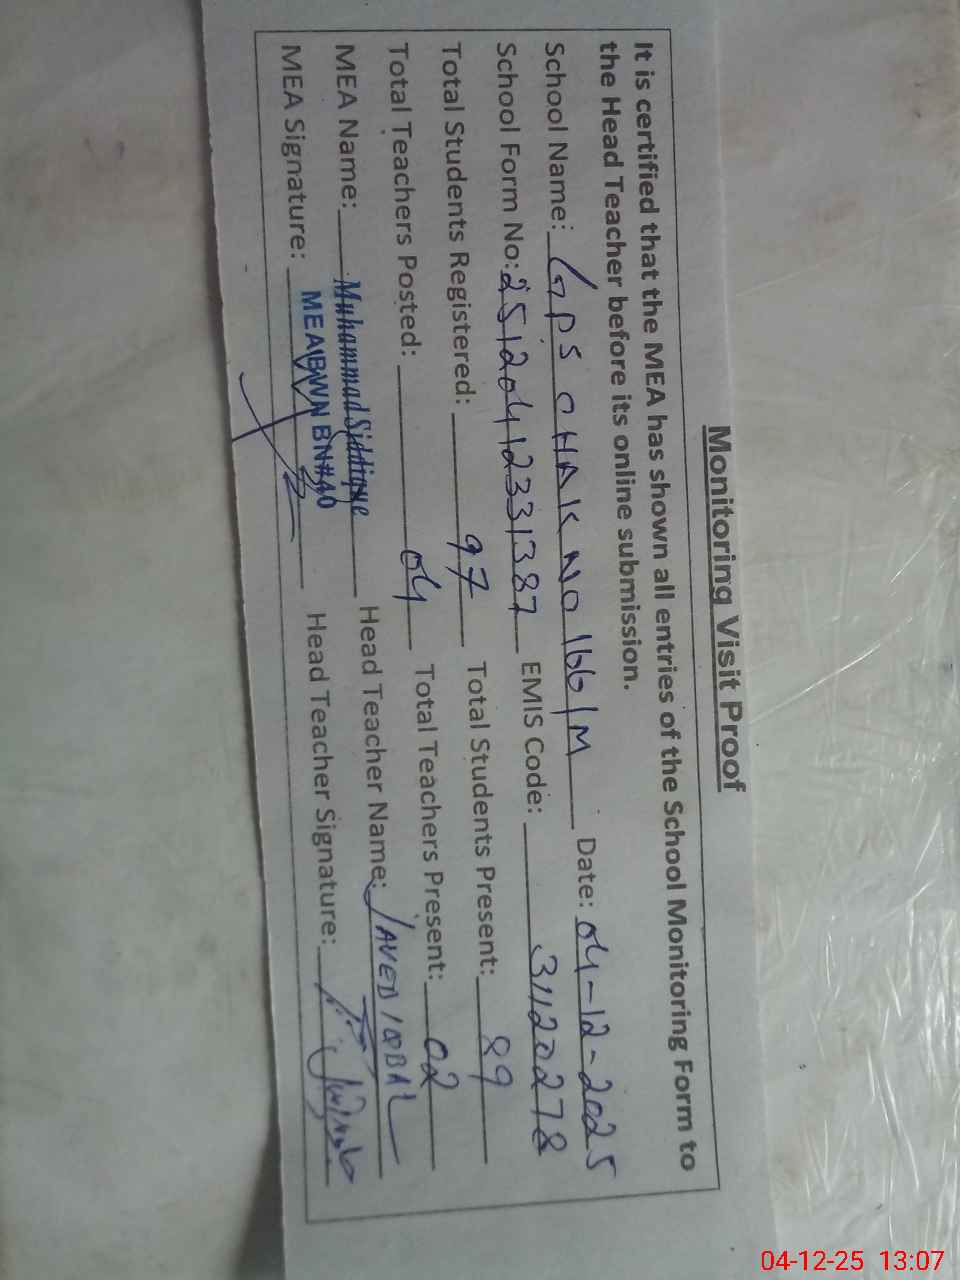 Monitoring Visit Proof
It is certified that the MEA has shown all entries of the School Monitoring Form to
the Head Teacher before its online submission.
School Name: GPS CHAK NO 166/M Date: 04-12-2025
School Form No: 25120412331387 EMIS Code: 31120278
Total Students Registered: 97 Total Students Present: 89
Total Teachers Posted: 04 Total Teachers Present: 02
MEA Name: Muhammad Siddique Head Teacher Name: JAVED IQBAL
MEA Signature: MEA BWN BN#40 Head Teacher Signature:
04-12-25 13:07